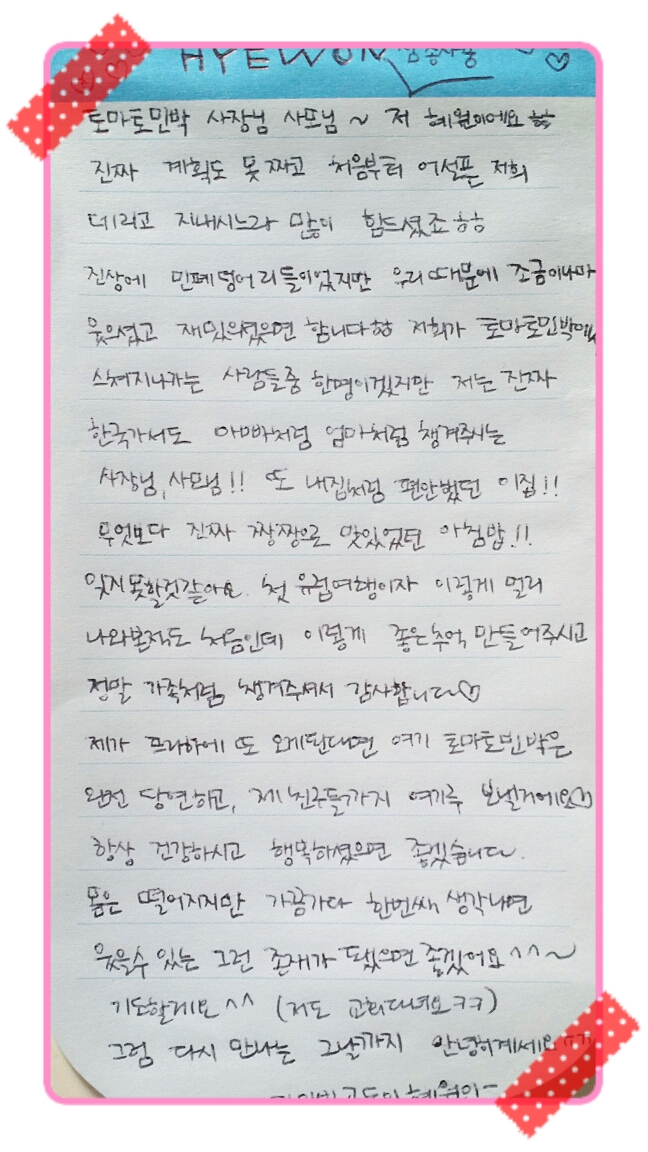 HYEWON
토마토민박 사장님 사모님 ~ 저 혜원이에요 ㅎㅎ
진짜 계획도 못짜고 처음부터 어설픈 저희
데리고 지내시느라 많이 힘드셨죠 ㅎㅎ
진상에 민폐덩어리들이었지만 우리때문에 조금이나마
웃으셨고 재밌으셨으면 합니다 ㅎㅎ 저희가 토마토민박에
스쳐지나가는 사람들중 한명이겠지만 저는 진짜
한국가서도 아빠처럼 엄마처럼 챙겨주시는
사장님, 사모님!! 또 내집처럼 편안했던 이집!!
무엇보다 진짜 짱짱으로 맛있었던 아침밥!!
잊지못할것같아요. 첫 유럽여행이자 이렇게 멀리
나와본적도 처음인데 이렇게 좋은추억 만들어주시고
정말 가족처럼 챙겨주셔서 감사합니다♡
제가 프라하에 또 오게된다면 여기 토마토민박은
완전 당연하고, 제 친구들까지 여기루 보낼거에요♡
항상 건강하시고 행복하셨으면 좋겠습니다.
몸은 떨어지지만 가끔가다 한번씩 생각나면
웃을수 있는 그런 존재가 됐으면 좋겠어요^^~
기도할게요^^ (저도 교회다녀요ㅋㅋ)
그럼 다시 만나는 그날까지 안녕히계세요
혜원이-